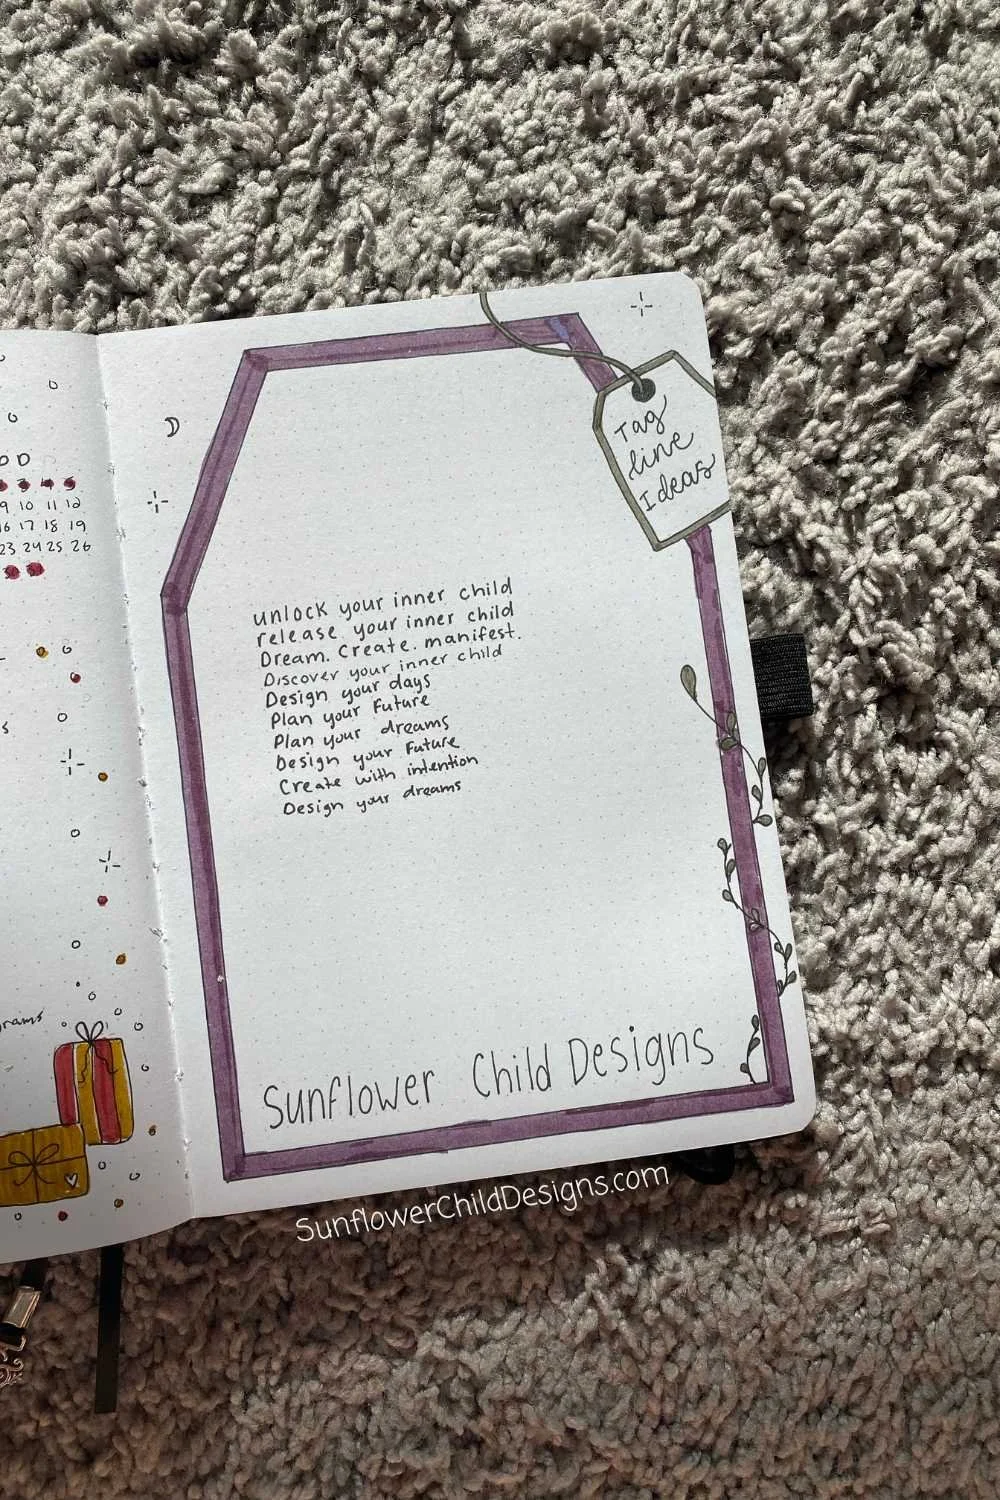 OD
3 4 5
9 10 11 12
16 17 18 19
23 24 25 26
Tag
line
Ideas
unlock your inner child
release your inner child
Dream. Create. manifest.
Discover your inner child
Design your days
Plan your Future
Plan your dreams
Design your Future
Create with intention
Design your dreams
Sunflower Child Designs
SunflowerChildDesigns.com